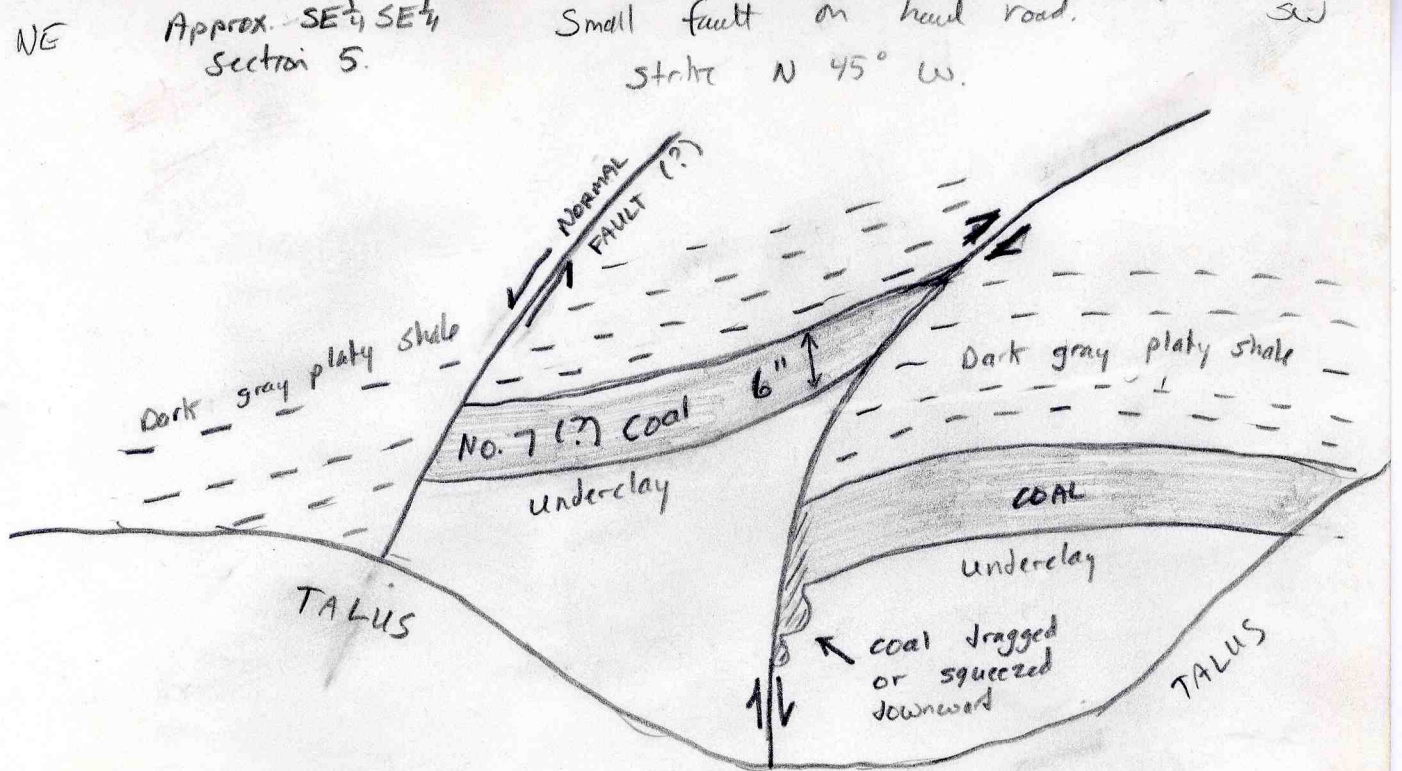 NE
Approx. SE¼ SE¼
Section 5.
Small fault on haul road.
Strike N 45° W.
SW
NORMAL
FAULT (?)
Dark gray platy shale
6"
No. 7 (?) Coal
Underclay
Dark gray platy shale
COAL
Underclay
TALUS
coal dragged
or squeezed
downward
TALUS